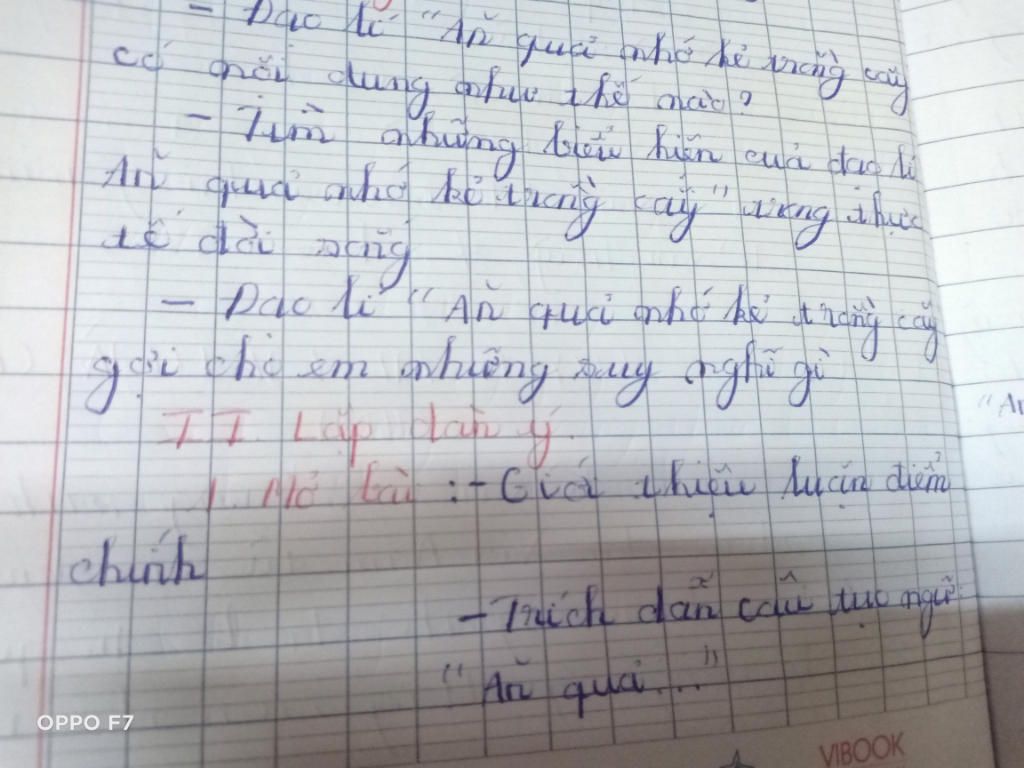 - Đạo lí "Ăn quả nhớ kẻ trồng cây
có nội dung như thế nào?
- Tìm những biểu hiện của đạo lí
Ăn quả nhớ kẻ trồng cây" trong thực
tế đời sống
- Đạo lí "Ăn quả nhớ kẻ trồng cây
gợi cho em những suy nghĩ gì
II Lập dàn ý
1 Mở bài :- Giới thiệu luận điểm
chính
- Trích dẫn câu tục ngữ
"Ăn quả..."
"Ăn
OPPO F7
VIBOOK